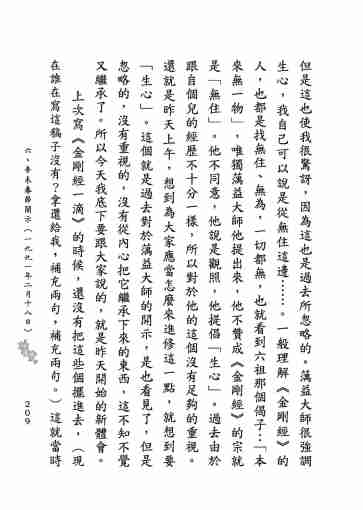 但是這也使我很驚訝，因為這也是過去所忽略的。蕅益大師很強調
生心，我自己可以說是從無住這邊……。一般理解《金剛經》的
人，也都是找無住、無為，一切都無，也就看到六祖那個偈子：「本
來無一物」，唯獨蕅益大師他提出來，他不贊成《金剛經》的宗就
是「無住」。他不同意，他說是觀照，他提倡「生心」。過去由於
跟自個兒的經歷不十分一樣，所以對於他的這個沒有足夠的重視。
還就是昨天上午，想到為大家應當怎麼來進修這一點，就想到要
「生心」。這個就是過去對於蕅益大師的開示，是也看見了，但是
忽略的，沒有重視的，沒有從內心把它繼承下來的東西，這不知不覺
又繼承了。所以今天我底下要跟大家說的，就是昨天開始的新體會。
上次寫《金剛經一滴》的時候，還沒有把這些個擺進去，（現
在誰在寫這稿子沒有？拿還給我，補充兩句，補充兩句。）這就當時
六、辛未春節開示（一九九一年二月十八日）
209